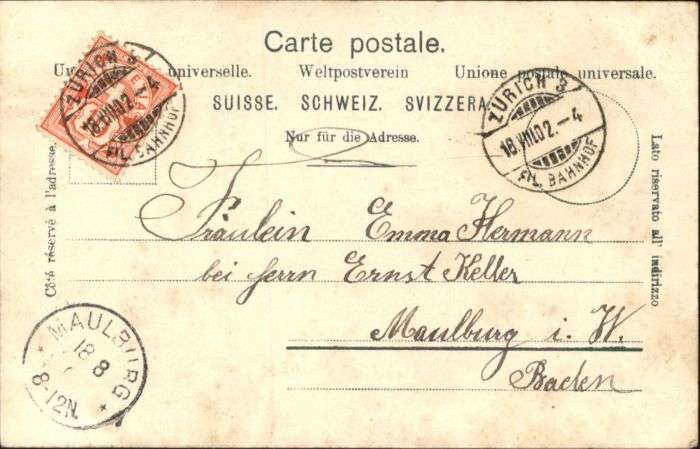 Carte postale.
universelle. Weltpostverein Unione postale universale.
SUISSE. SCHWEIZ. SVIZZERA.
Nur für die Adresse.
ZÜRICH 3
18.VIII.02.–4
FIL. BAHNHOF
ZÜRICH 3
18.VIII.02.–4
FIL. BAHNHOF
Côté réservé à l'adresse.
Lato riservato all' indirizzo
Fräulein Emma Hermann
bei Herrn Ernst Keller
Maulburg i. W.
Baden
MAULBURG
18 8
8-12N.